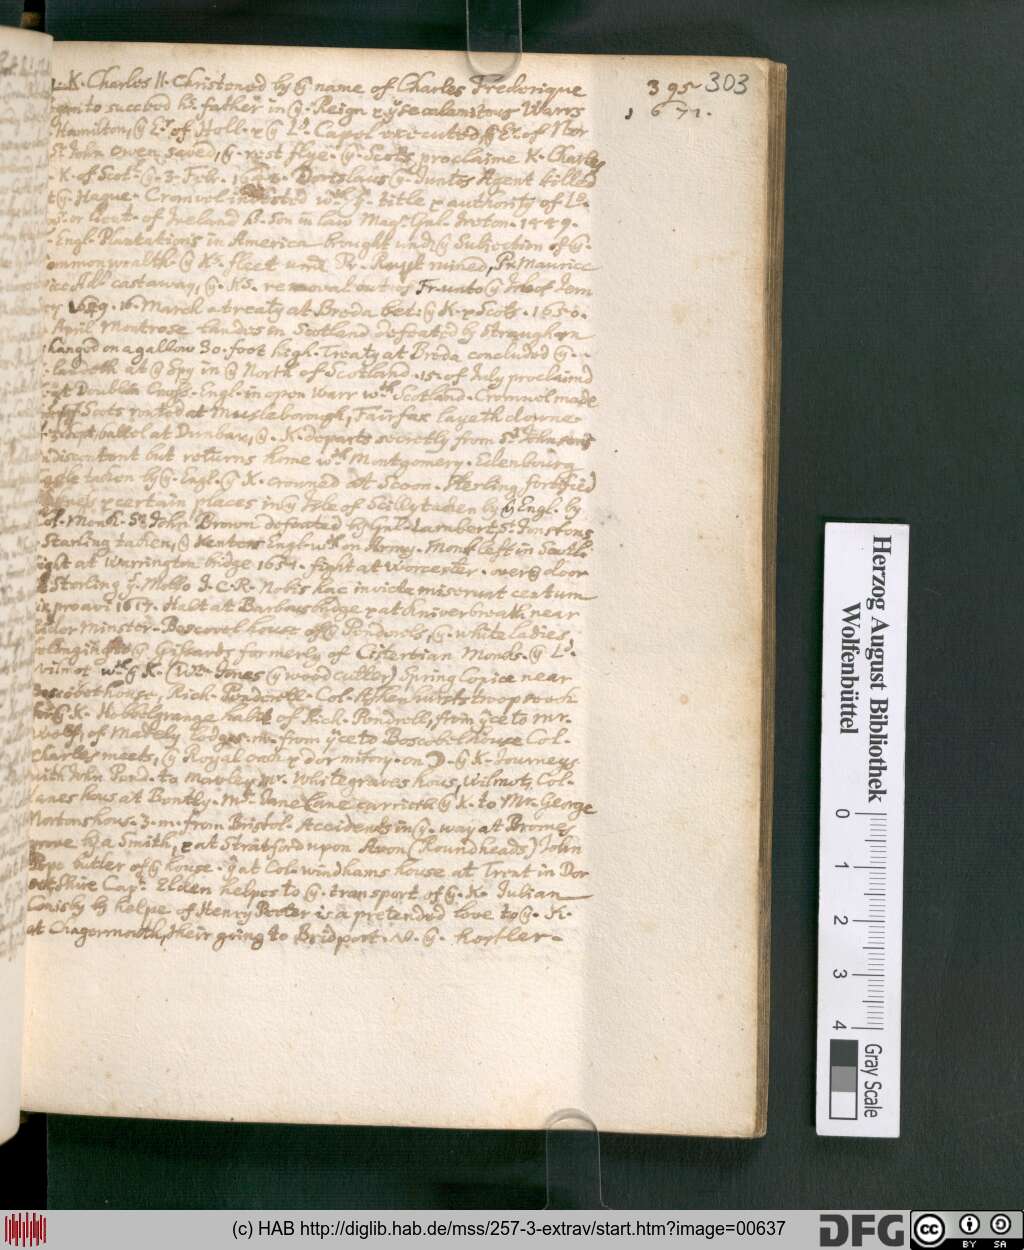 395 303
1671.
K. Charles II. Christened by ỹ name of Charles Frederique
to succeed hs. father in ỹ. Reign & yse calamitous Warrs
Hamilton, ỹ Er. of Holl. & ỹ Ld. Capel executed, ỹ Er. of Nor
St. John Owen saved, ỹ. rest flye. ỹ. Scots proclaime K. Charles
K. of Scot. ỹ. 3. Febr. Dorislaus ỹ. Juntos Agent killed
ỹ. Hague. Cromvel invested wth. ỹ. title & authority of Ld.
or Lieut. of Ireland h. Son in law Maqr. Gal. Ireton. 1649.
Engl. Plantations in America brought undr ỹ Subjection of ỹ.
ommonwealth ỹ Ks. fleet und Pr. Rupt ruined, Pr. Maurice
castaway, ỹ. Ks. removal out of Fr. unto ỹ Isle of Jern
1649. 16. March a treaty at Breda bet. ỹ K. & Scots. 1650.
April Montrose landes in Scotland defeated by Straughan
hanged on a gallow 30. foot high. Treaty at Breda concluded ỹ.
landeth at ỹ Spy in ỹ North of Scotland. 15. of July proclaimd
at Engl. in open Warr wth. Scotland. Cromvel made
Scots routed at Musleborough, Fairfax layeth downe
battel at Dunbar, ỹ. K. departs secretly from St. Johnsons
discontent but returns hime wth. Montgomery. Edenbourg
taken by ỹ. Engl. ỹ K. crowned at Scoon. Sterling fortified
& certain places in ỹ Isle of Scilly taken by ỹ Engl. by
Col. Monk. Sr. John Brown defeated by Gnl. Lambert, St. Jonstons
Starling taken, ỹ K enters Engl. wth. an Army. Monk left in Scotl.
ight at Warrington bridge 1651. fight at Worcester. over ỹ door
Sterling ỹ. Motto J. C. R. Nobis haec invicta miserunt centum
proavi 1617. Halt at Barbous bidge & at Kniverbreath near
der minster. Boscovel house of ỹ Penderels, ỹ. white ladies
belonging to ỹ Gifsards formerly of Cistertian Monks. ỹ Ld.
Wilmot wth. ỹ K. (Wm. Jones ỹ wood cutter) Spring Copice near
Boscobel house, Rich. Penderell. Col. troop seech
ỹ. K. Hobbelgrange habit of Rich. Pendrell, from ỹce to Mr.
Wolfs, of Madely Lodges. m. from ỹce to Boscobel house Col.
Charles meets, ỹ Royal oack & dormitory. on ỹ K. Journeys
with John Pend. to Moseley mr. Whitegreaves hous, Wilmot, Col.
Lanes hous at Bently. Mrs. Jane Lane carrieth ỹ K. to Mr. George
Nortons hous. 3. m. from Bristol. Accidents in ỹ. way at Bromes
grove by a Smith, & at Stratford upon Avon (Roundheads) John
Pope butler of ỹ house. ỹ at Col. windhams house at Trent in Dor
set Shire Capn. Elden helpes to ỹ. transport of ỹ. K. Julian
Conisby by helpe of Henry Peeter is a pretended love to ỹ. K.
at Chagermouth, their going to Bridport. ỹ. hostler.
Herzog August Bibliothek
Wolfenbüttel
0 1 2 3 4
Gray Scale
(c) HAB http://diglib.hab.de/mss/257-3-extrav/start.htm?image=00637
DFG
cc BY SA